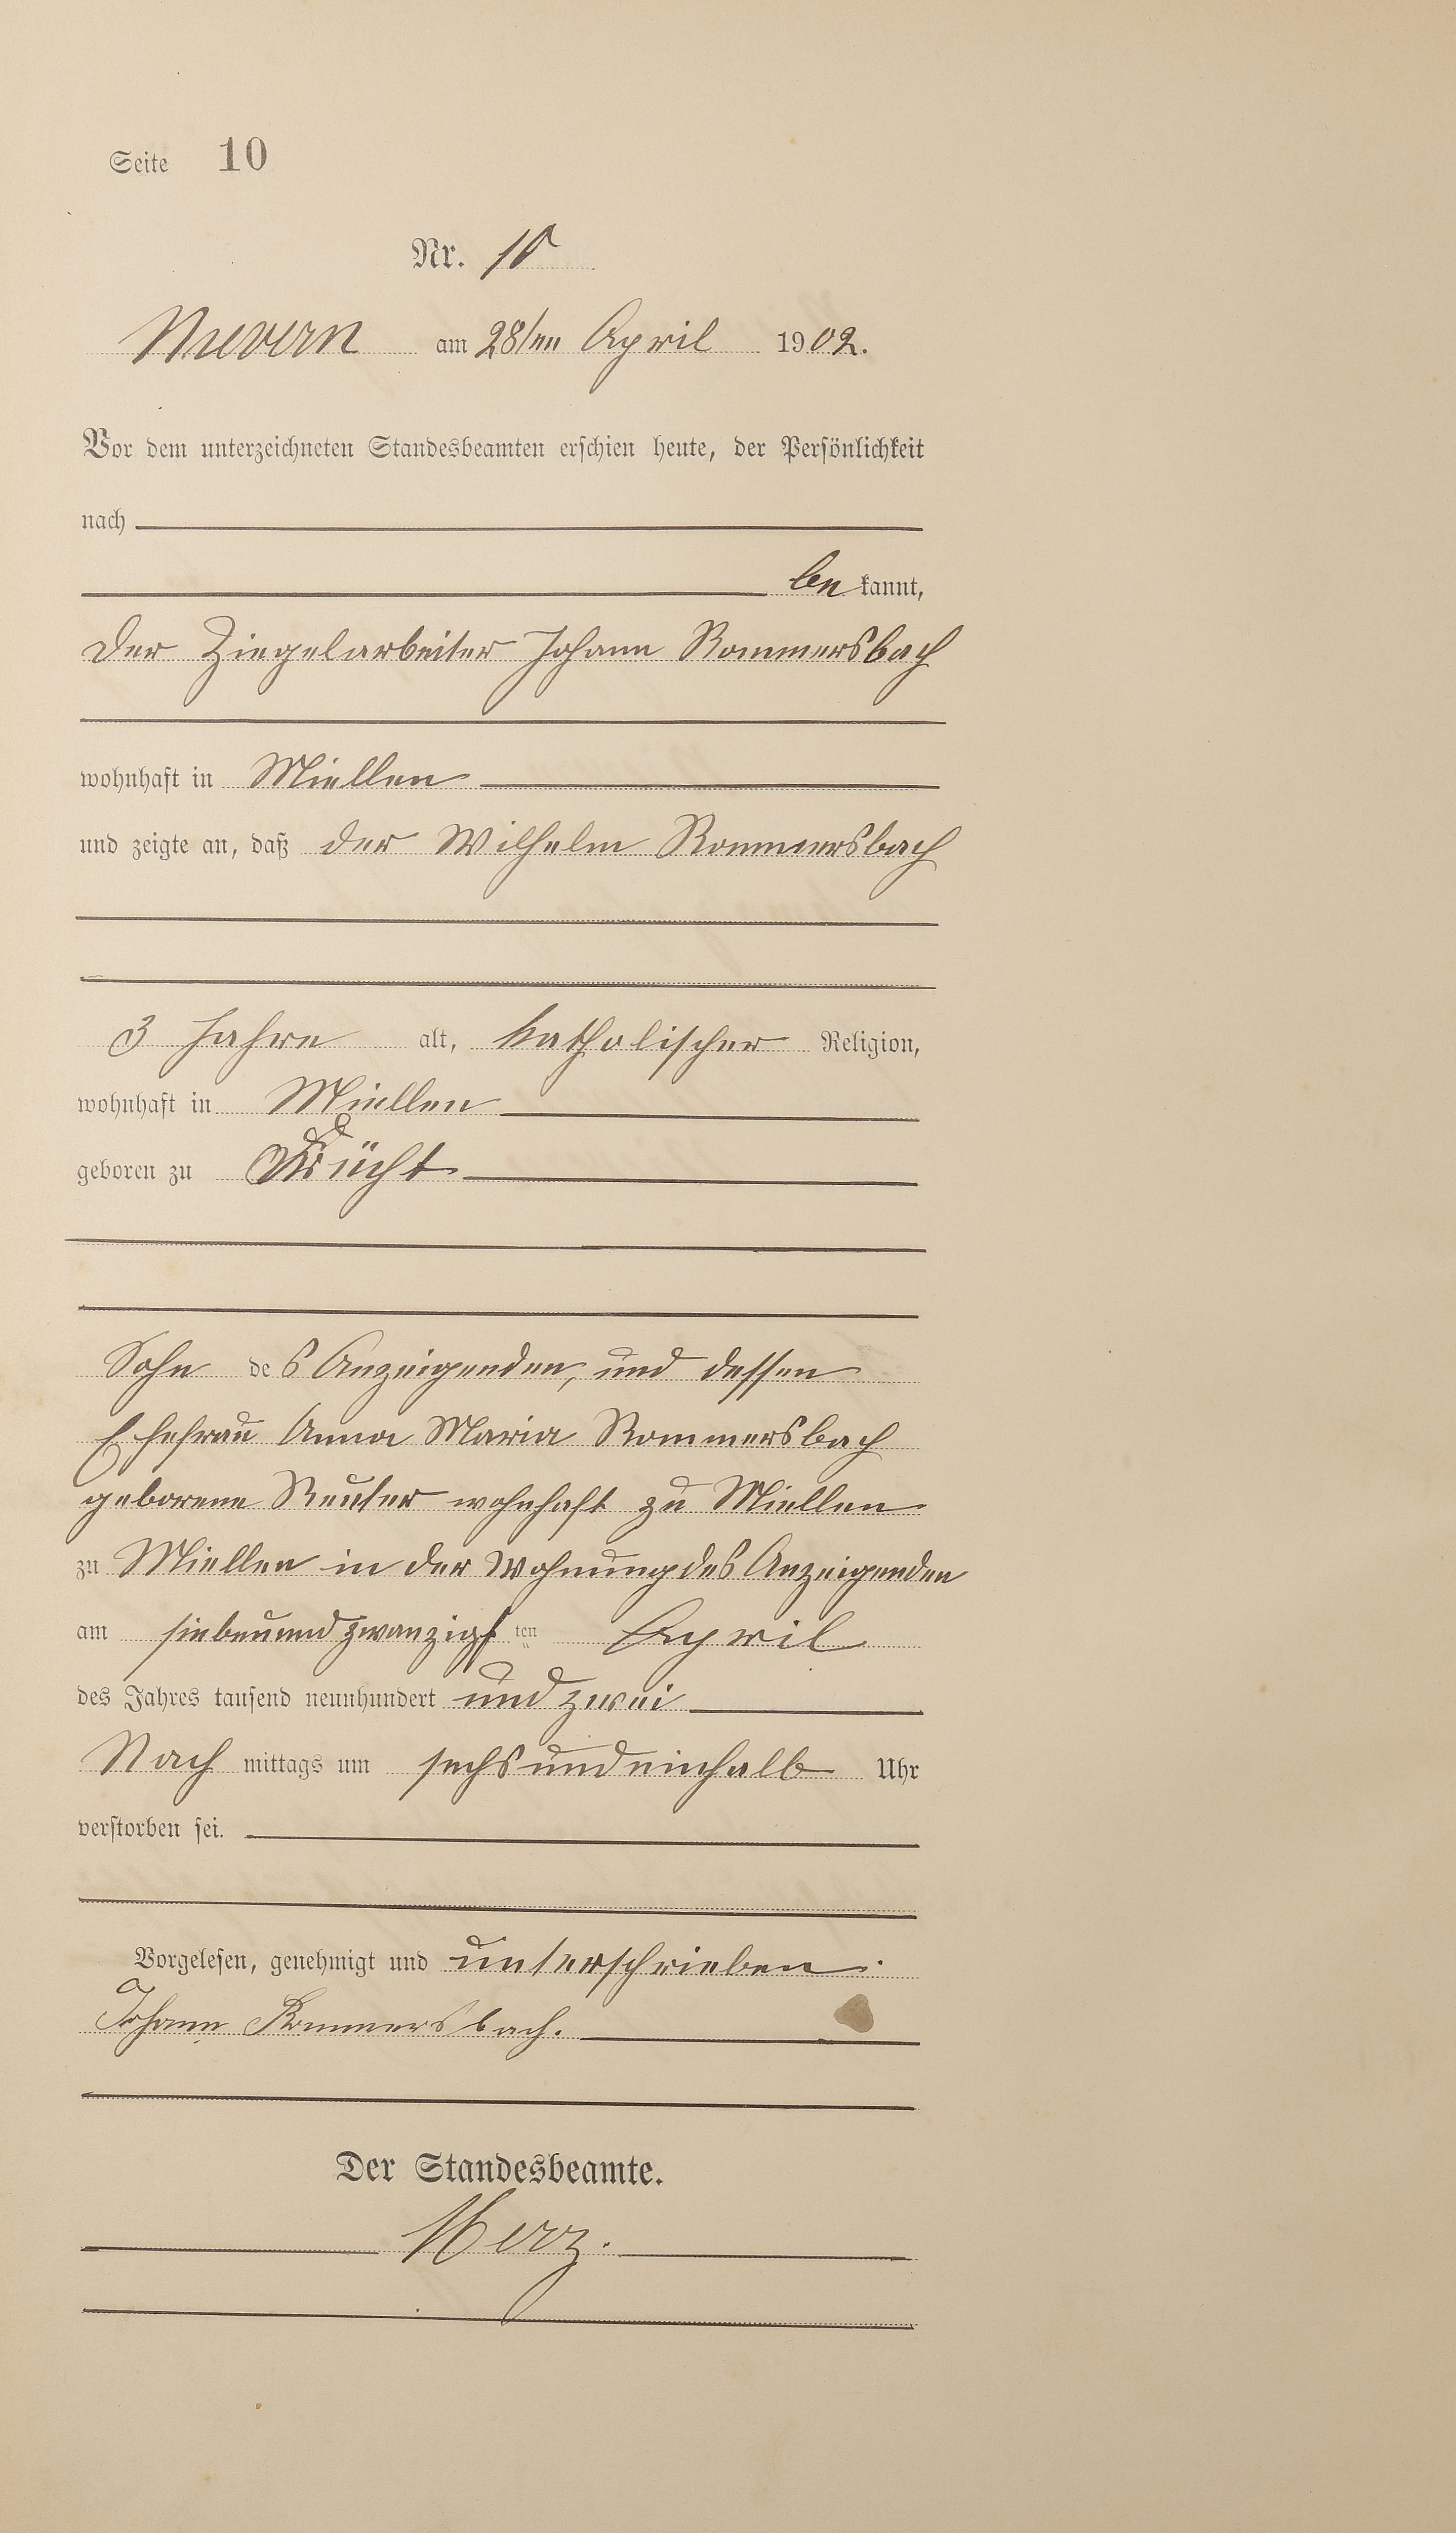 Seite 10
Nr. 10
Nievern am 28ten April 1902.
Vor dem unterzeichneten Standesbeamten erschien heute, der Persönlichkeit
nach
be kannt,
der Ziegelarbeiter Johann Rommersbach
wohnhaft in Miellen
und zeigte an, daß der Wilhelm Rommersbach
3 Jahre alt, katholischer Religion,
wohnhaft in Miellen
geboren zu Frücht
Sohn des Anzeigenden, und dessen
Ehefrau Anna Maria Rommersbach
geborene Reuter wohnhaft zu Miellen
zu Miellen in der Wohnung des Anzeigenden
am siebenundzwanzigsten April
des Jahres tausend neunhundert und zwei
Nach mittags um sechsundeinhalb Uhr
verstorben sei.
Vorgelesen, genehmigt und unterschrieben.
Johann Rommersbach.
Der Standesbeamte.
Herz.